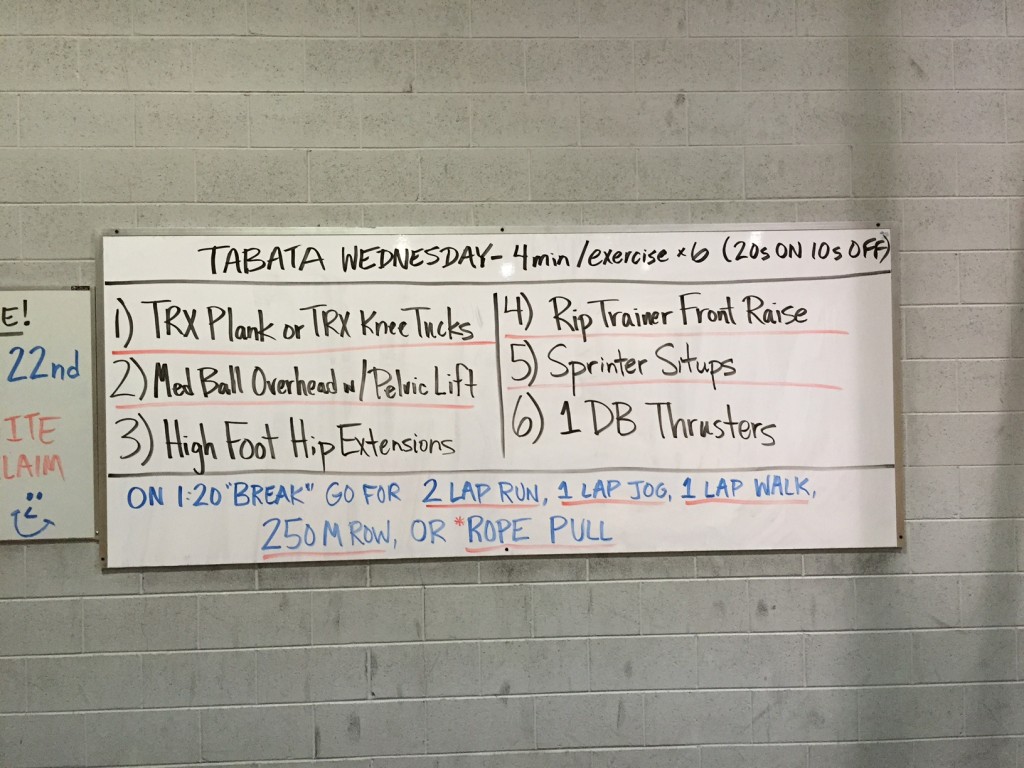 E!
22nd
ITE
LAIM
TABATA WEDNESDAY- 4min/exercise x6 (20s ON 10s OFF)
1) TRX Plank or TRX Knee Tucks
2) Med Ball Overhead w/Pelvic Lift
3) High Foot Hip Extensions
4) Rip Trainer Front Raise
5) Sprinter Situps
6) 1 DB Thrusters
ON 1:20 "BREAK" GO FOR 2 LAP RUN, 1 LAP JOG, 1 LAP WALK,
250 M ROW, OR *ROPE PULL